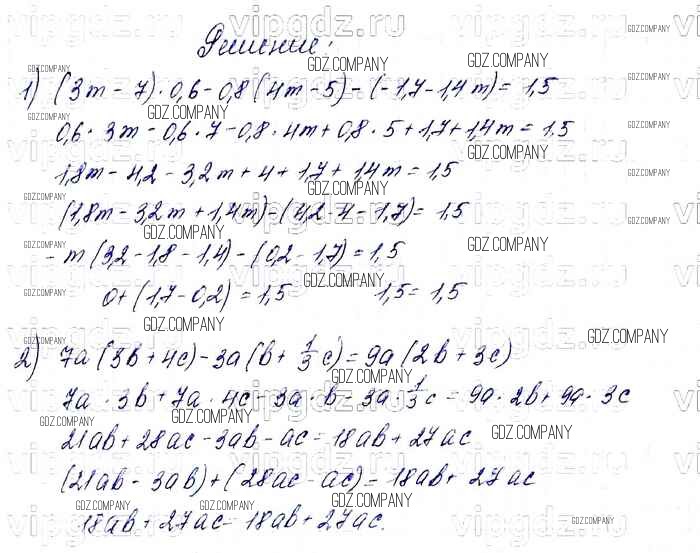 Решение:
1) (3m - 7) · 0,6 - 0,8 (4m - 5) - (-1,7 - 1,4m) = 1,5
0,6 · 3m - 0,6 · 7 - 0,8 · 4m + 0,8 · 5 + 1,7 + 1,4m = 1,5
1,8m - 4,2 - 3,2m + 4 + 1,7 + 1,4m = 1,5
(1,8m - 3,2m + 1,4m) - (4,2 - 4 - 1,7) = 1,5
- m (3,2 - 1,8 - 1,4) - (0,2 - 1,7) = 1,5
0 + (1,7 - 0,2) = 1,5 1,5 = 1,5
2) 7a (3b + 4c) - 3a (b + 1/3 c) = 9a (2b + 3c)
7a · 3b + 7a · 4c - 3a · b - 3a · 1/3 c = 9a · 2b + 9a · 3c
21ab + 28ac - 3ab - ac = 18ab + 27ac
(21ab - 3ab) + (28ac - ac) = 18ab + 27ac
18ab + 27ac = 18ab + 27ac.